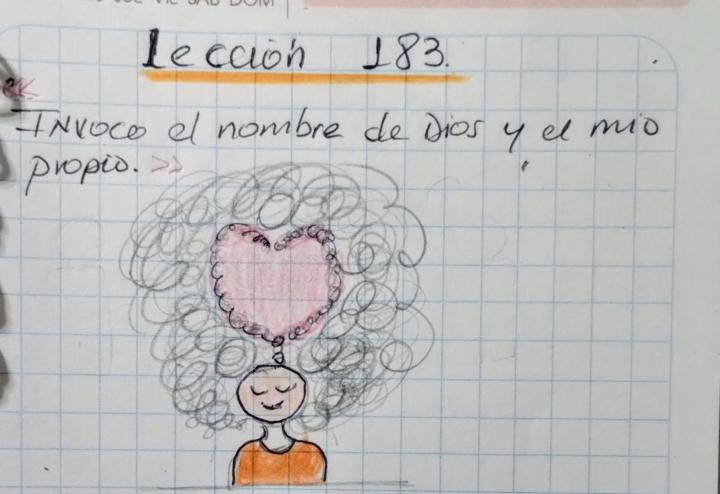 VIE SAB DOM
Lección 183.
<<Invoco el nombre de Dios y el mío
propio.>>